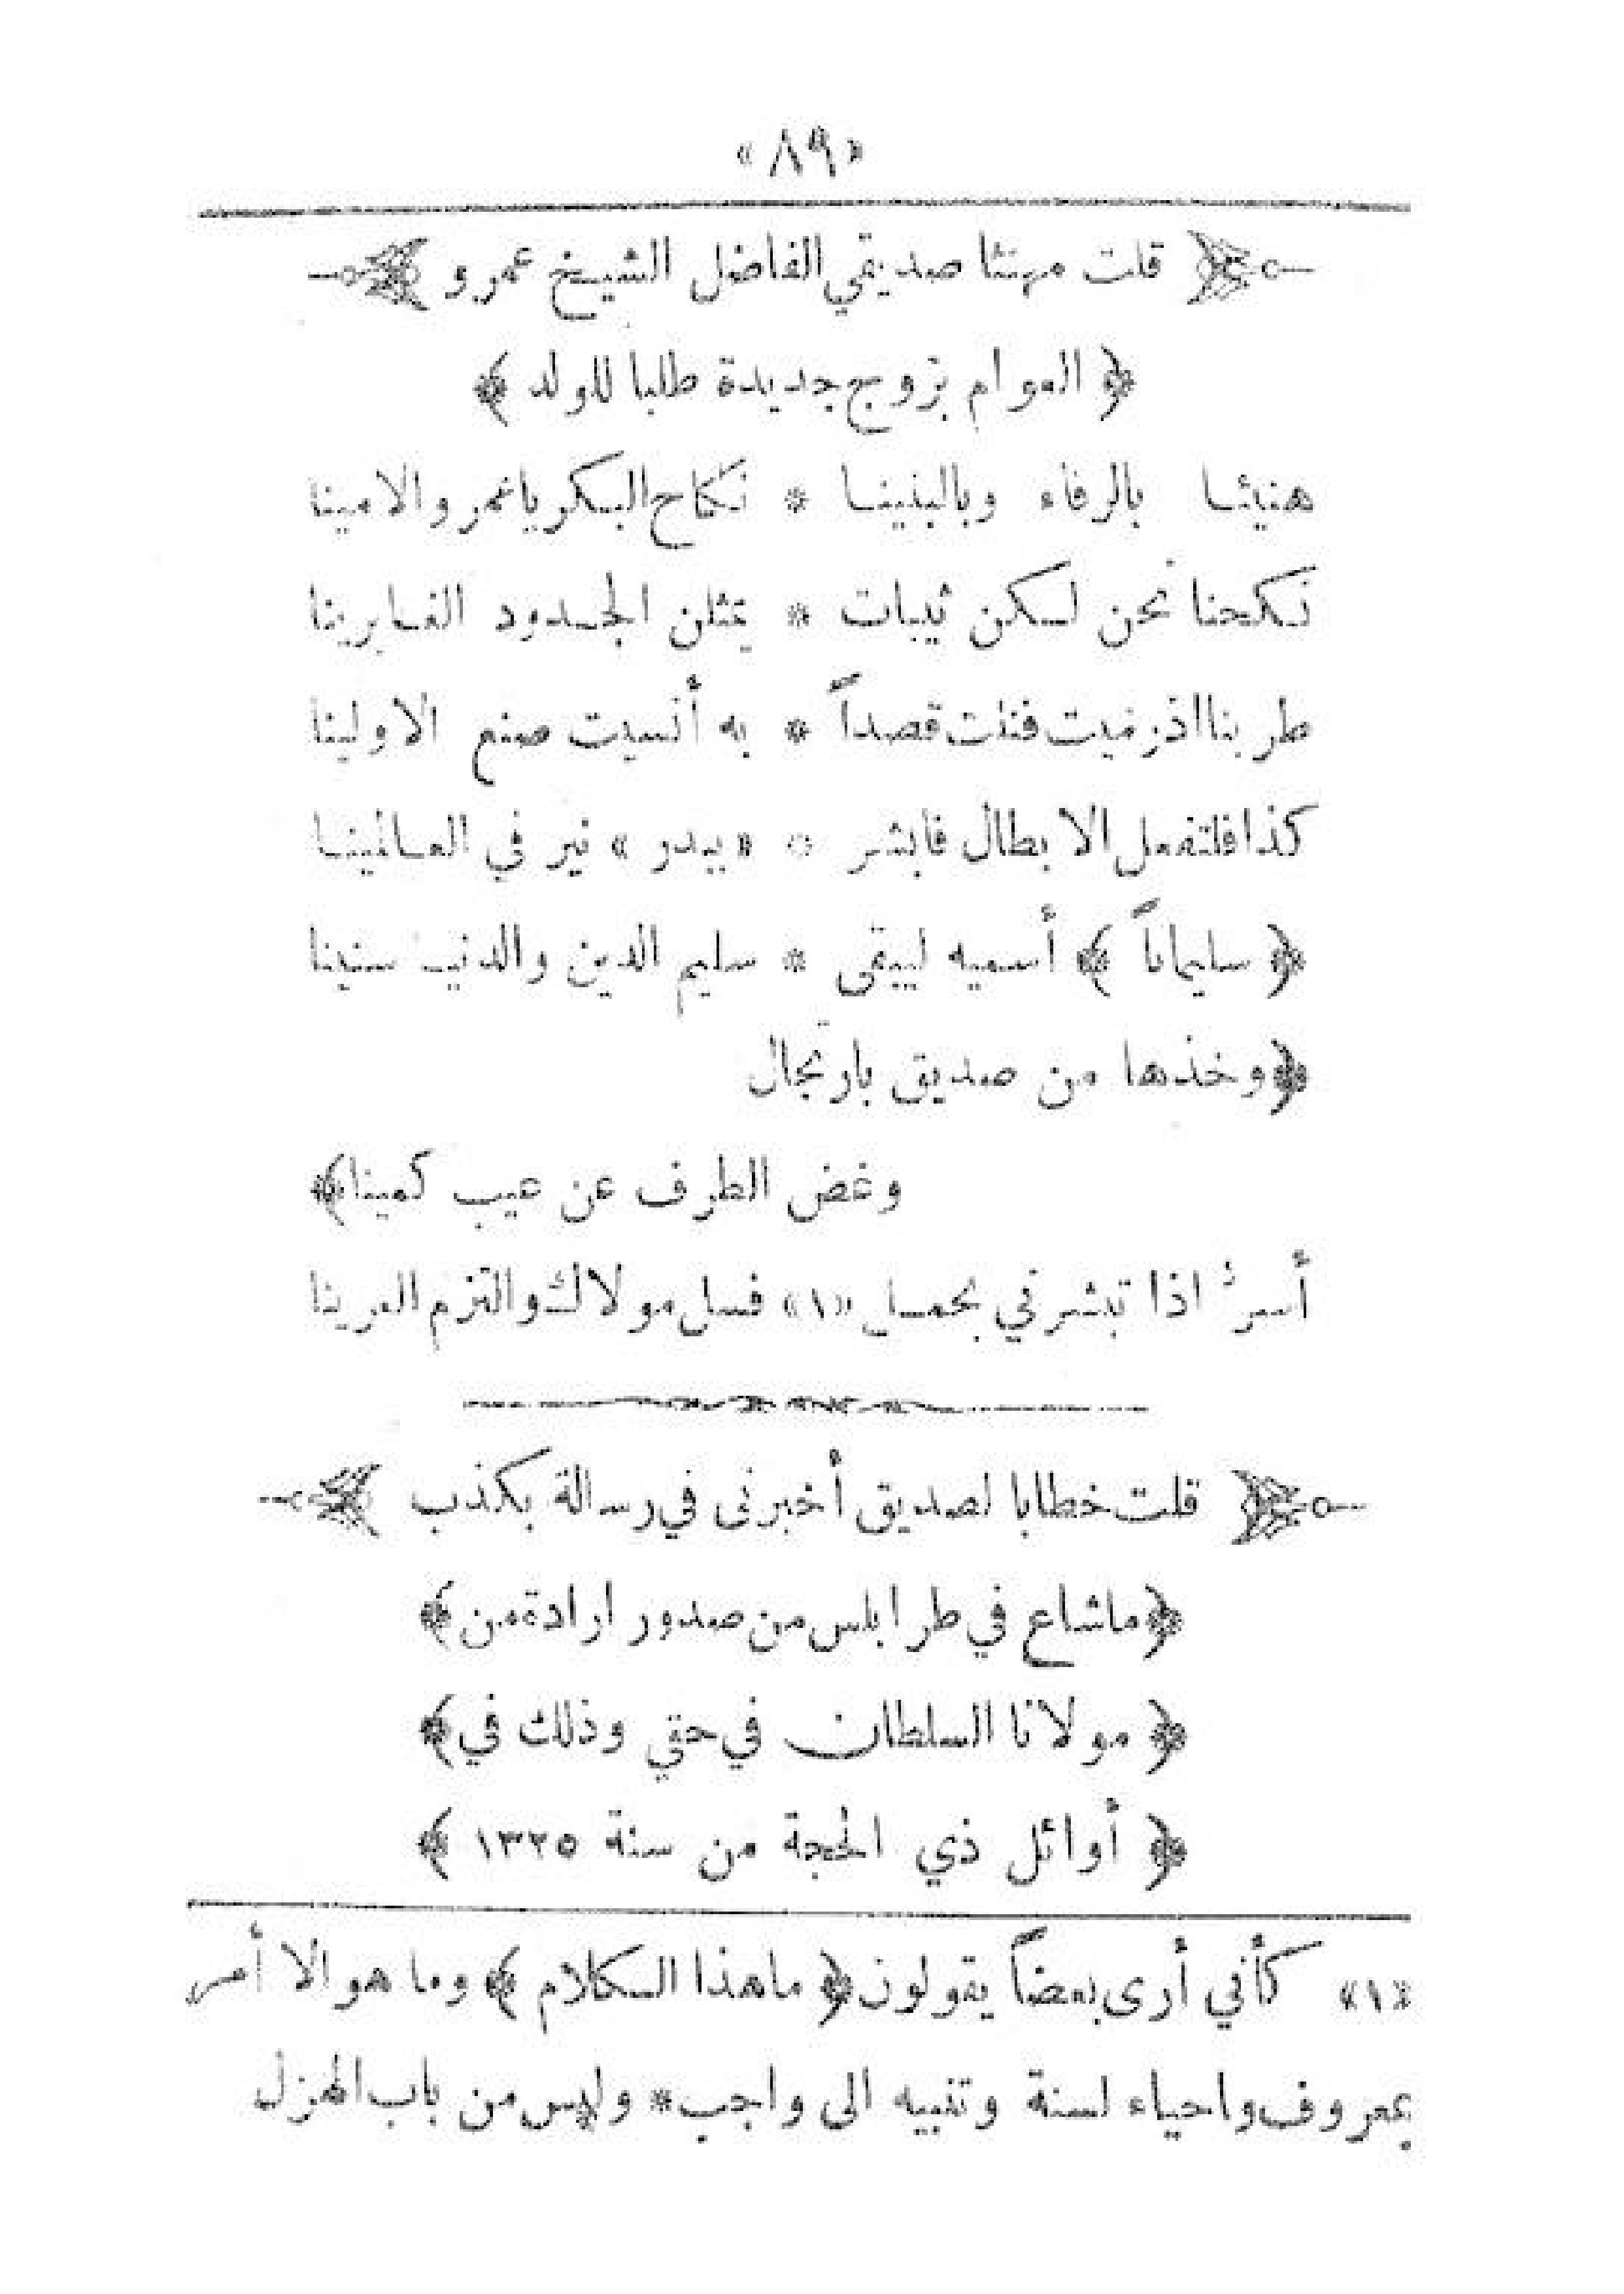 «٨٩»
﴿ قلت مهنئا صديقي الفاضل الشيخ عمرو ﴾
﴿ العوام بزوج جديدة طلبا للولد ﴾
هنيئا بالرفاء وبالبنينا * نكاح البكر ياعمرو الامينا
نكحنا نحن لكن ثيبات * يمثلن الجدود الغابرينا
طربنا اذ رميت فنلت قصداً * به أنسيت صنع الاولينا
كذا فلتفعل الابطال فابشر * «ببدر» نير في العالمينا
﴿ سليماناً ﴾ أسميه ليبقى * سليم الدين والدنيا سنينا
﴿وخذها من صديق بارتجال
وغض الطرف عن عيب كمينا﴾
أسرُّ اذا تبشرني بحمل «١» فسل مولاك والتزم العرينا
﴿ قلت خطابا لصديق أخبرنى في رسالة بكذب ﴾
﴿ماشاع في طرابلس من صدور ارادة من﴾
﴿ مولانا السلطان في حقي وذلك في﴾
﴿ أوائل ذي الحجة من سنة ١٣٢٥ ﴾
«١» كأني أرى بعضاً يقولون﴿ ماهذا الكلام ﴾ وما هو الا أمر
بمعروف واحياء لسنة وتنبيه الى واجب* وليس من باب الهزل